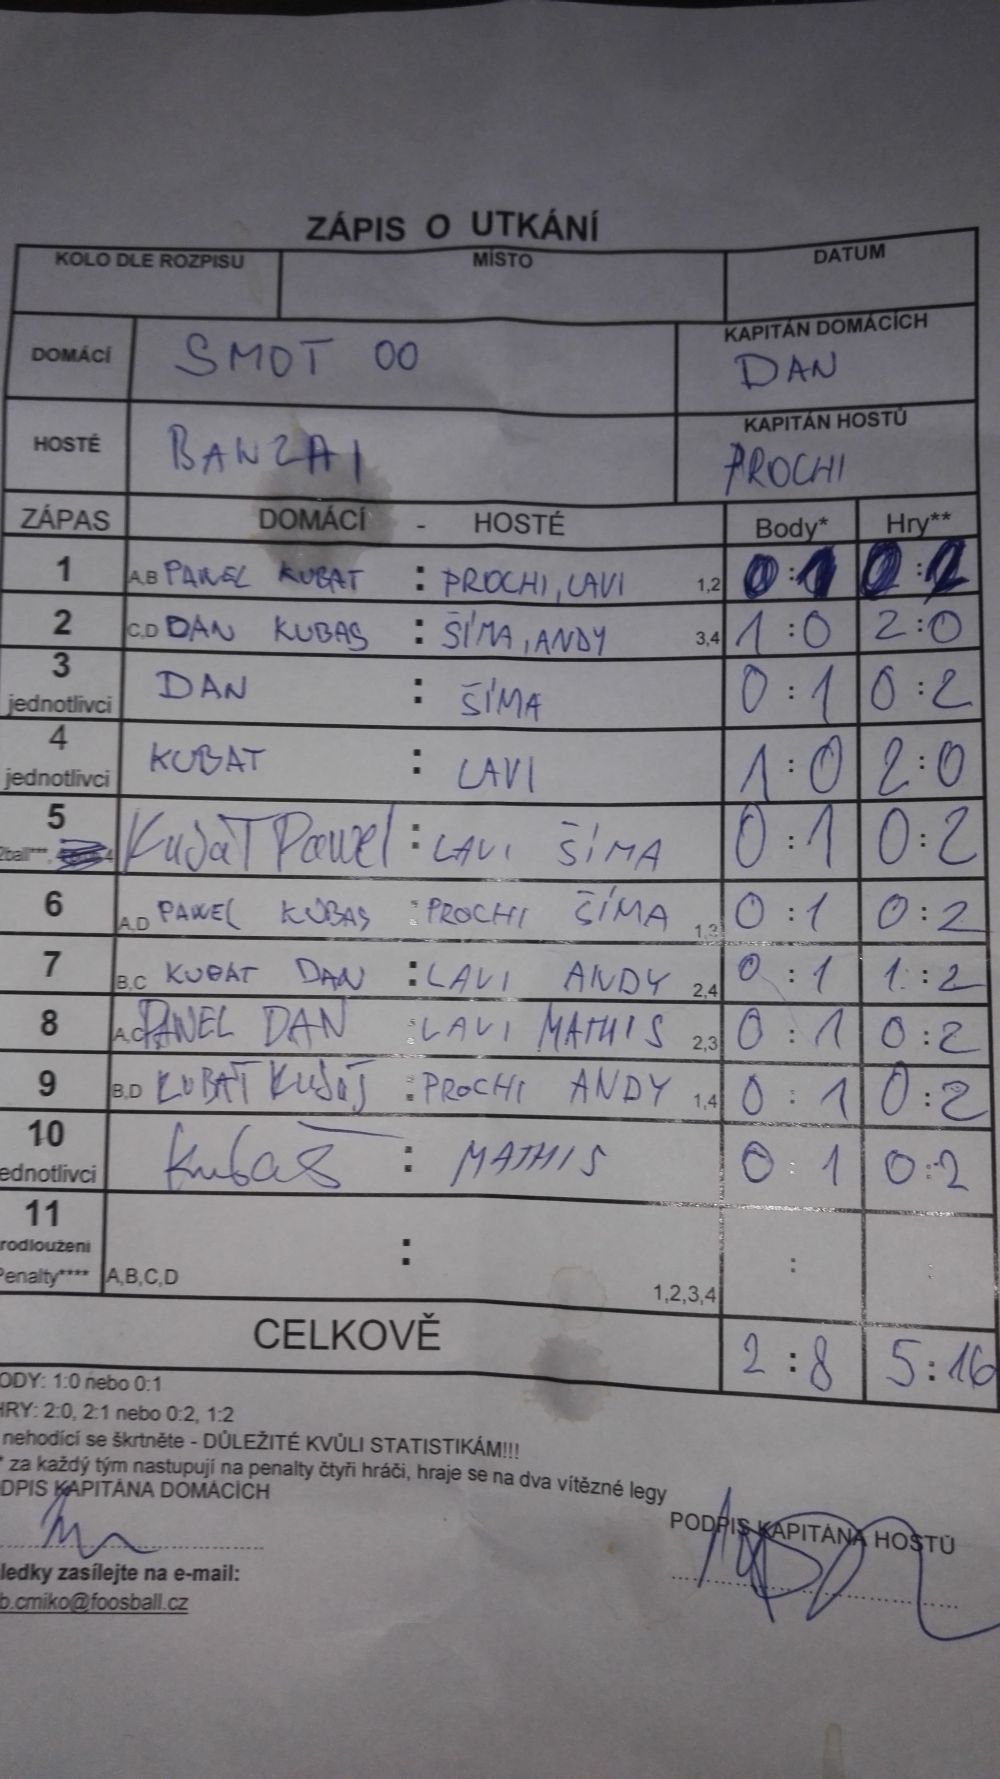 ZÁPIS O UTKÁNÍ
KOLO DLE ROZPISU MÍSTO DATUM
DOMÁCÍ SMOT 00 KAPITÁN DOMÁCÍCH
DAN
HOSTÉ BANZAI KAPITÁN HOSTŮ
PROCHI
ZÁPAS DOMÁCÍ - HOSTÉ Body* Hry**
1 A,B PAWEL KUBAT : PROCHI, LAVI 1,2 0:1 0:2
2 C,D DAN KUBAS : ŠÍMA, ANDY 3,4 1:0 2:0
3 jednotlivci DAN : ŠÍMA 0:1 0:2
4 jednotlivci KUBAT : LAVI 1:0 2:0
5 2ball***, KubaT Pawel : LAVI ŠÍMA 0:1 0:2
6 A,D PAWEL KUBAS : PROCHI ŠÍMA 1,3 0:1 0:2
7 B,C KUBAT DAN : LAVI ANDY 2,4 0:1 1:2
8 A,C PAWEL DAN : LAVI MATHIS 2,3 0:1 0:2
9 B,D KUBAT KubaS : PROCHI ANDY 1,4 0:1 0:2
10 ednotlivci KubaS : MATHIS 0:1 0:2
11
rodloužení : :  :
Penalty**** A,B,C,D 1,2,3,4
CELKOVĚ 2:8 5:16
ODY: 1:0 nebo 0:1
HRY: 2:0, 2:1 nebo 0:2, 1:2
nehodící se škrtněte - DŮLEŽITÉ KVŮLI STATISTIKÁM!!!
* za každý tým nastupují na penalty čtyři hráči, hraje se na dva vítězné legy
DPIS KAPITÁNA DOMÁCÍCH PODPIS KAPITÁNA HOSTŮ
ledky zasílejte na e-mail:
b.cmiko@foosball.cz